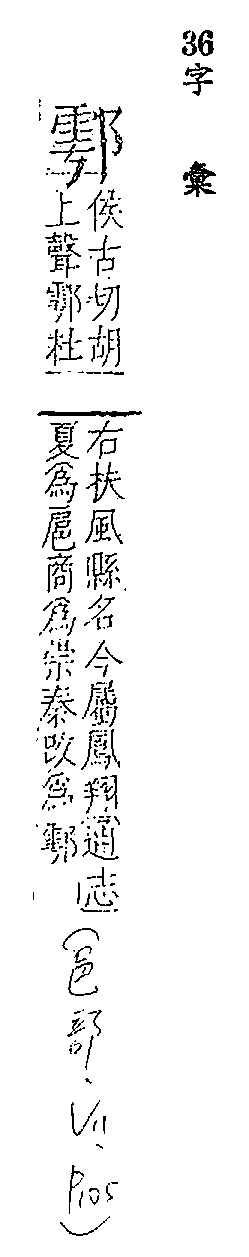 36 字彙
鄠
侯古切胡
上聲鄠杜
右扶風縣名今屬鳳翔通志
夏為扈商為崇秦改為鄠
(邑部、VII、P105)